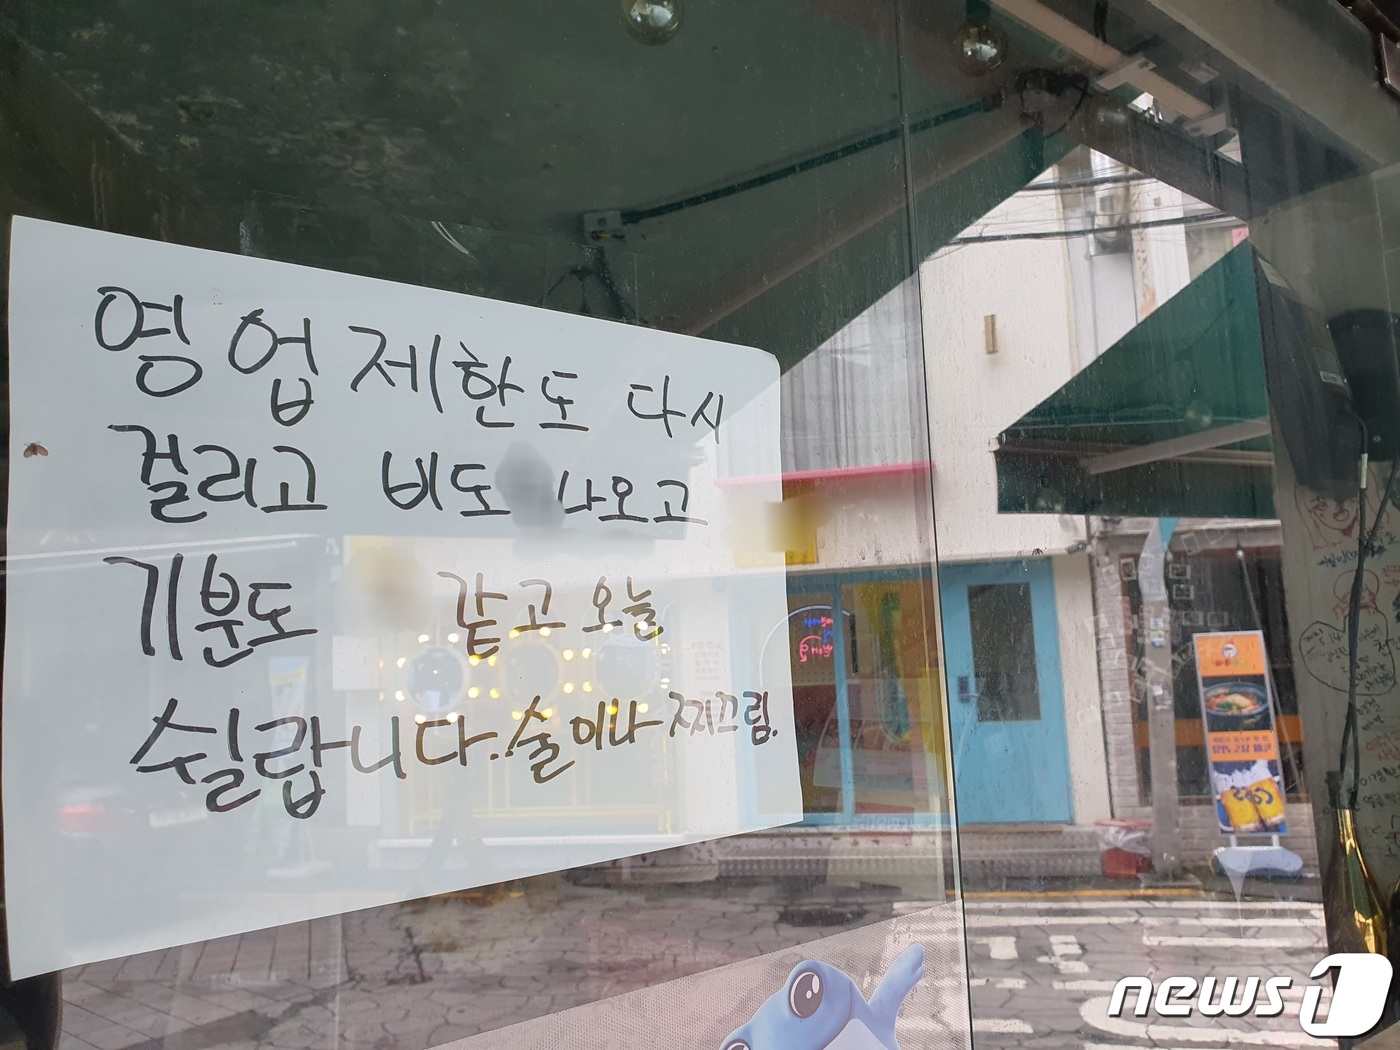 영업제한도 다시
걸리고 비도 나오고
기분도 같고 오늘
쉴랍니다. 술이나 찌끄림.
news1